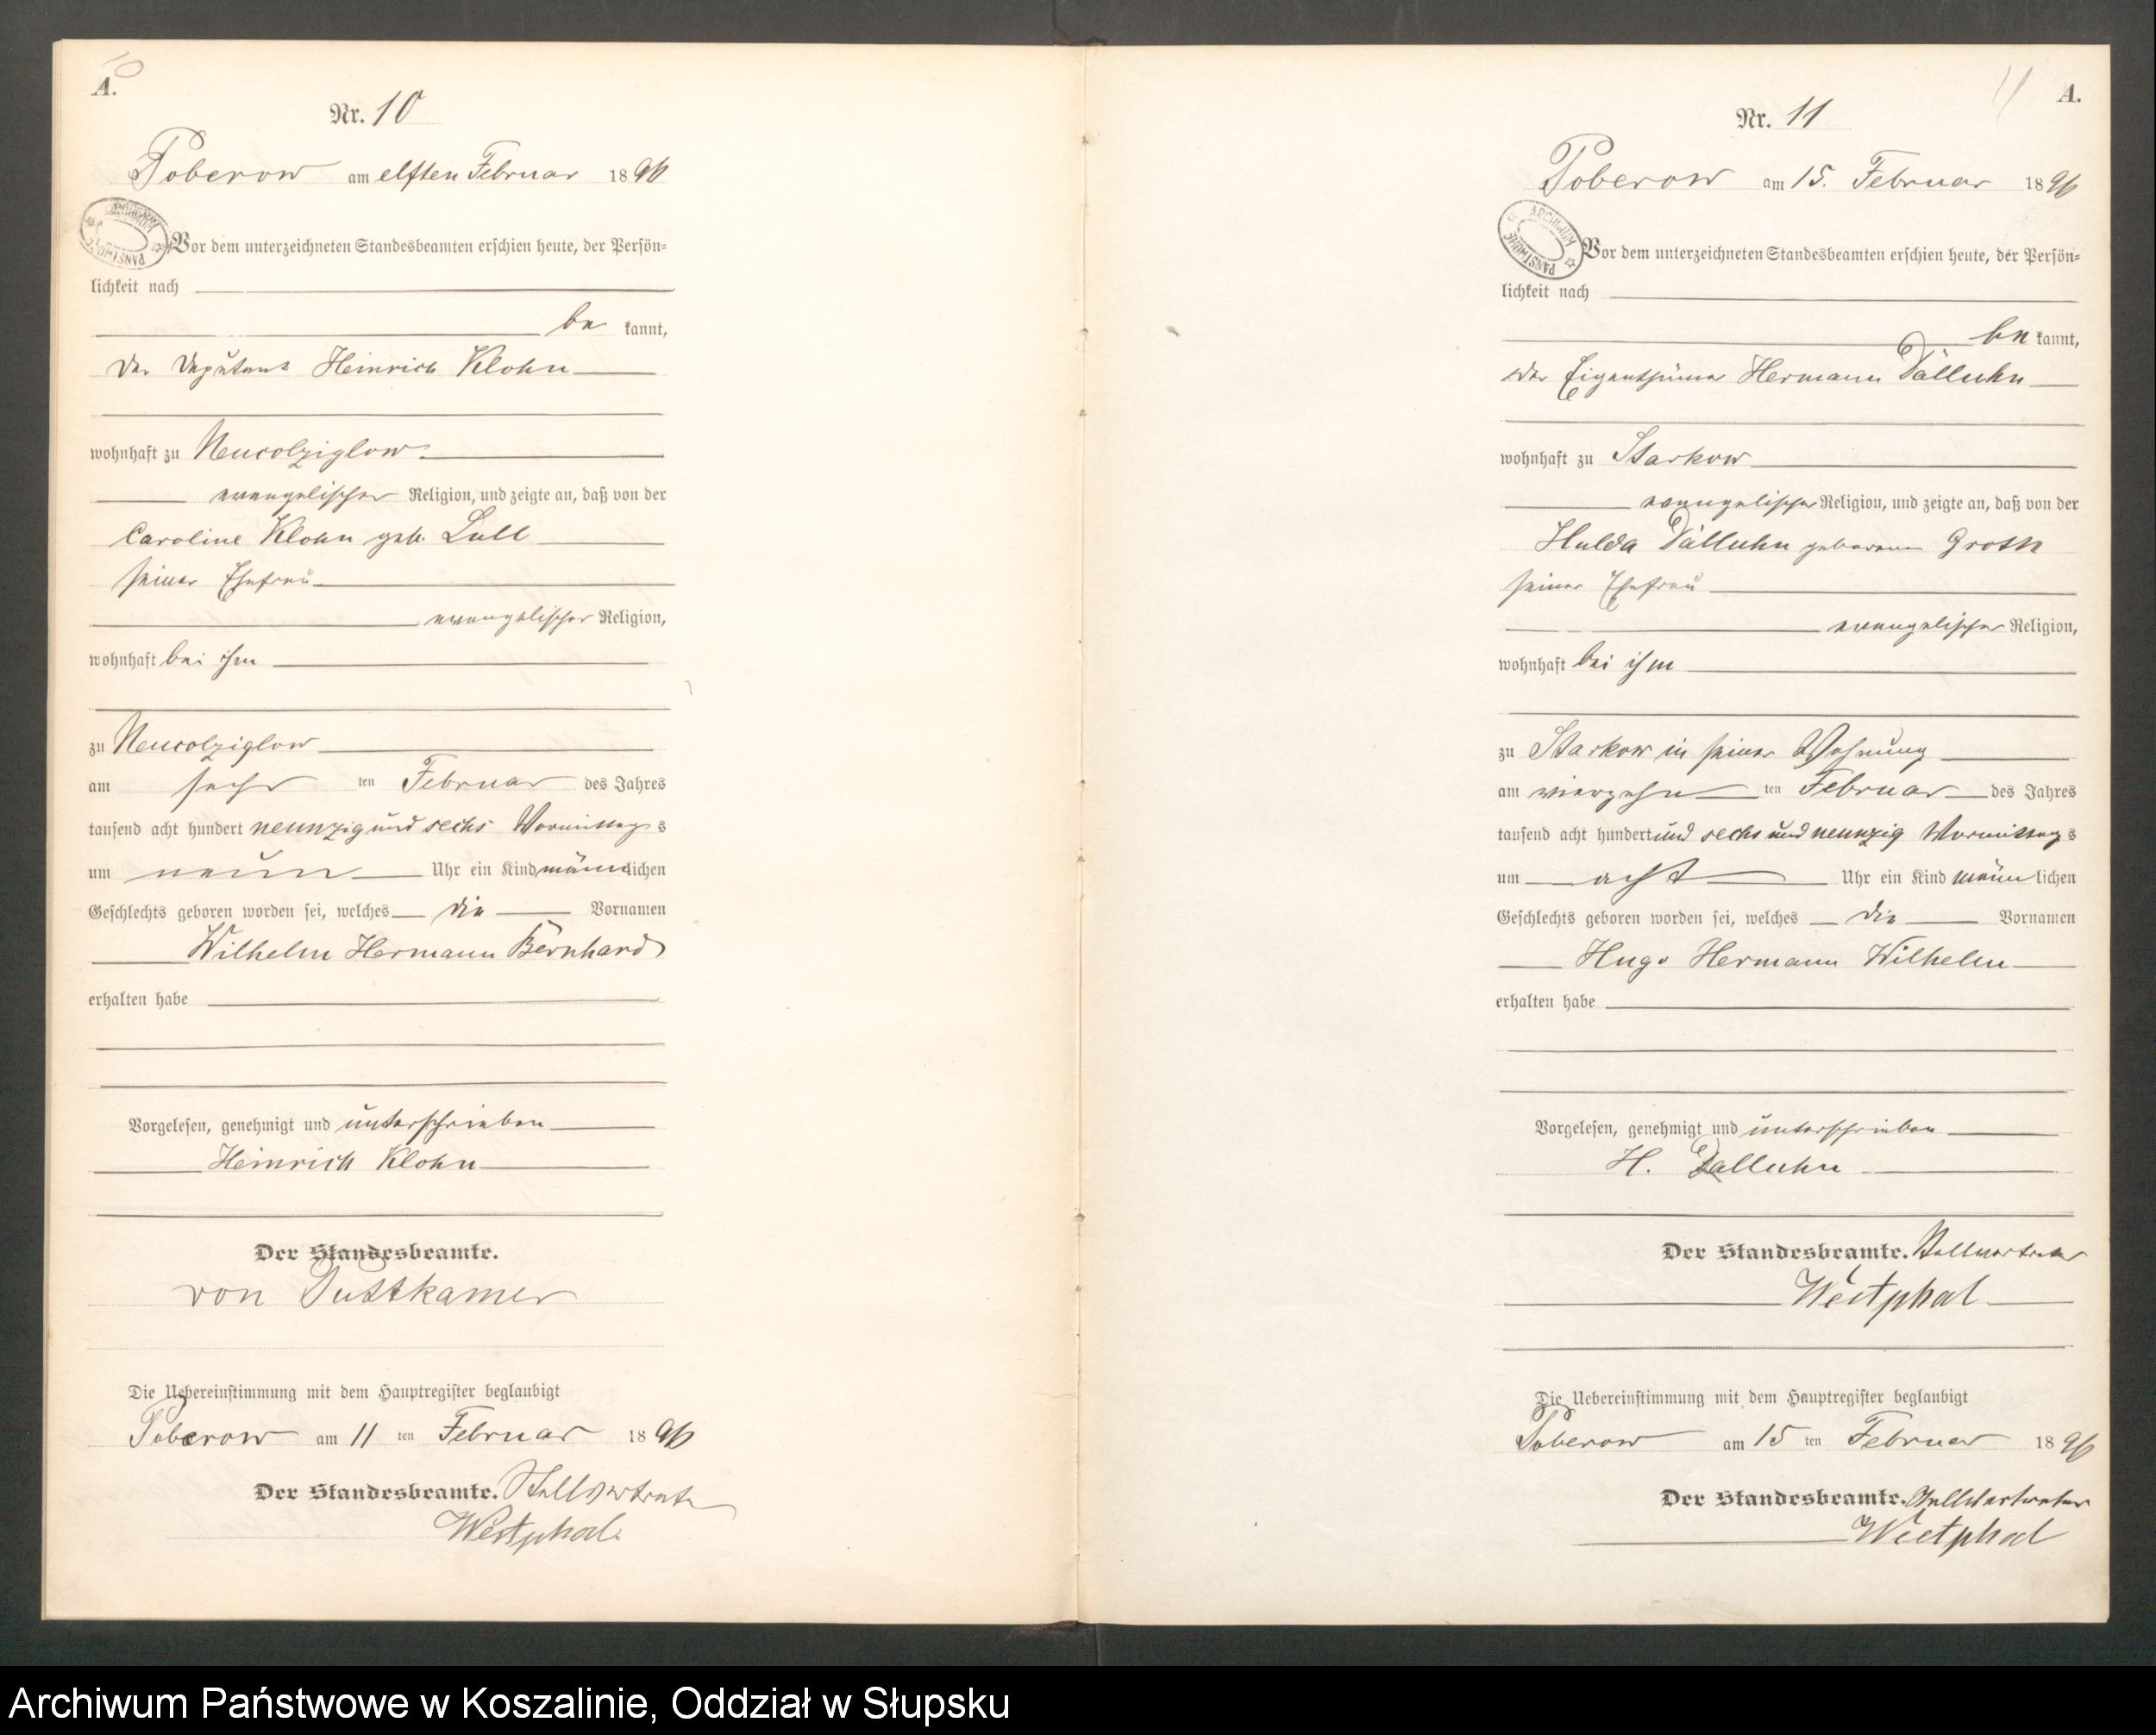 10
A.
Nr. 10
Poberow am elften Februar 1896
Vor dem unterzeichneten Standesbeamten erschien heute, der Persön=
lichkeit nach
be kannt,
der Deputant Heinrich Klohn
wohnhaft zu Neucolziglow
evangelischer Religion, und zeigte an, daß von der
Caroline Klohn geb. Lull
seiner Ehefrau
evangelischer Religion,
wohnhaft bei ihm
zu Neucolziglow
am sechs ten Februar des Jahres
tausend acht hundert neunzig und sechs Vormittag s
um neun Uhr ein Kind männlichen
Geschlechts geboren worden sei, welches die Vornamen
Wilhelm Hermann Bernhard
erhalten habe
Vorgelesen, genehmigt und unterschrieben
Heinrich Klohn
Der Standesbeamte.
von Puttkamer
Die Uebereinstimmung mit dem Hauptregister beglaubigt
Poberow am 11 ten Februar 1896
Der Standesbeamte. Stellvertreter
Westphal
11
A.
Nr. 11
Poberow am 15. Februar 1896
ARCHIWUM PAŃSTWOWE
Vor dem unterzeichneten Standesbeamten erschien heute, der Persön=
lichkeit nach
be kannt,
der Eigenthümer Hermann Dälluhn
wohnhaft zu Starkow
evangelischer Religion, und zeigte an, daß von der
Hulda Dälluhn geborene Groth
seiner Ehefrau
evangelischer Religion,
wohnhaft bei ihm
zu Starkow in seiner Wohnung
am vierzehn ten Februar des Jahres
tausend acht hundert und sechs und neunzig Vormittag s
um acht Uhr ein Kind männ lichen
Geschlechts geboren worden sei, welches die Vornamen
Hugo Hermann Wilhelm
erhalten habe
Vorgelesen, genehmigt und unterschrieben
H. Dalluhn
Der Standesbeamte. Stellvertreter
Westphal
Die Uebereinstimmung mit dem Hauptregister beglaubigt
Poberow am 15 ten Februar 1896
Der Standesbeamte. Stellvertreter
Westphal
Archiwum Państwowe w Koszalinie, Oddział w Słupsku